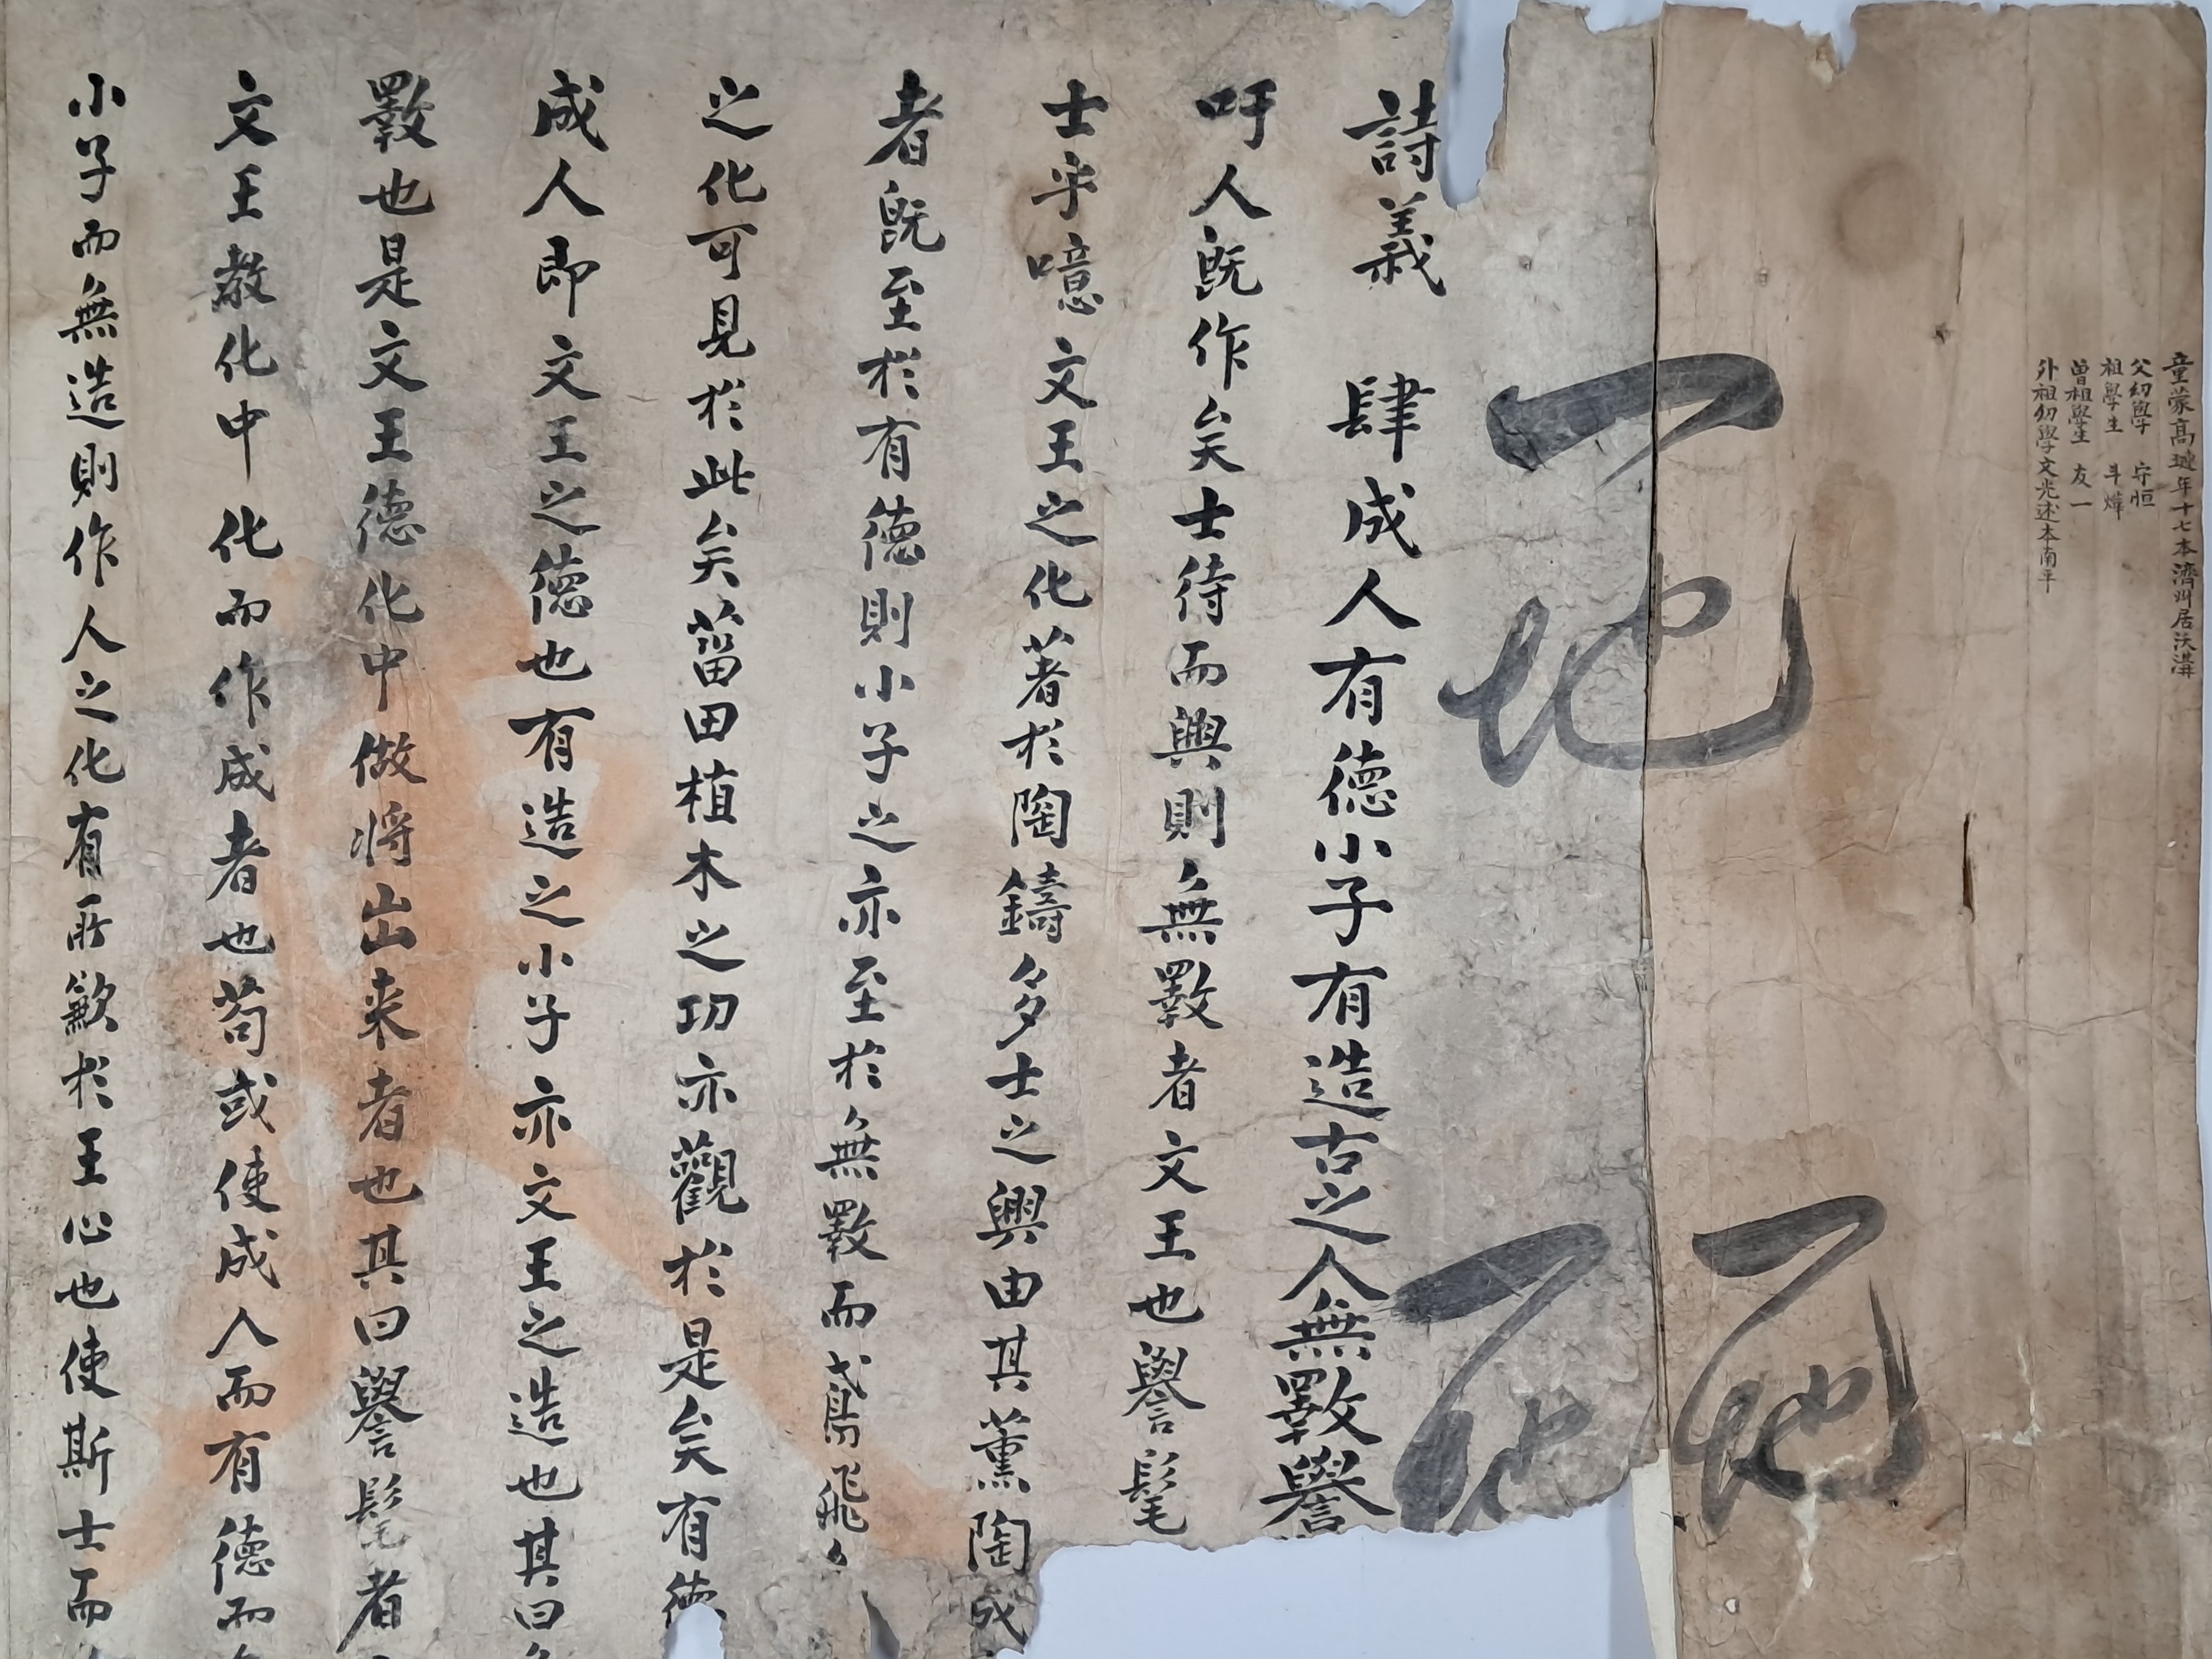 童蒙高璉年十七本濟州居沃溝
父幼學 守恒
祖學生 斗燁
曾祖學生 友一
外祖幼學文光述本南平
詩義 肆成人有德小子有造古之人無斁譽
吁人旣作矣士待而興則無斁者文王也譽髦
士乎噫文王之化著於陶鑄多士之興由其薰陶成
者旣至於有德則小子之亦至於無斁而鳶飛
之化可見於此矣菑田植木之功亦觀於是矣有德
成人即文王之德也有造之小子亦文王之造也其曰
斁也是文王德化中做將出来者也其曰譽髦者
文王教化中化而作成者也苟或使成人而有德而
小子而無造則作人之化有所歉於王心也使斯士而